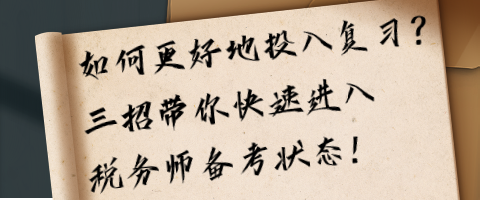 如何更好地投入复习？
三招带你快速进入
税务师备考状态！